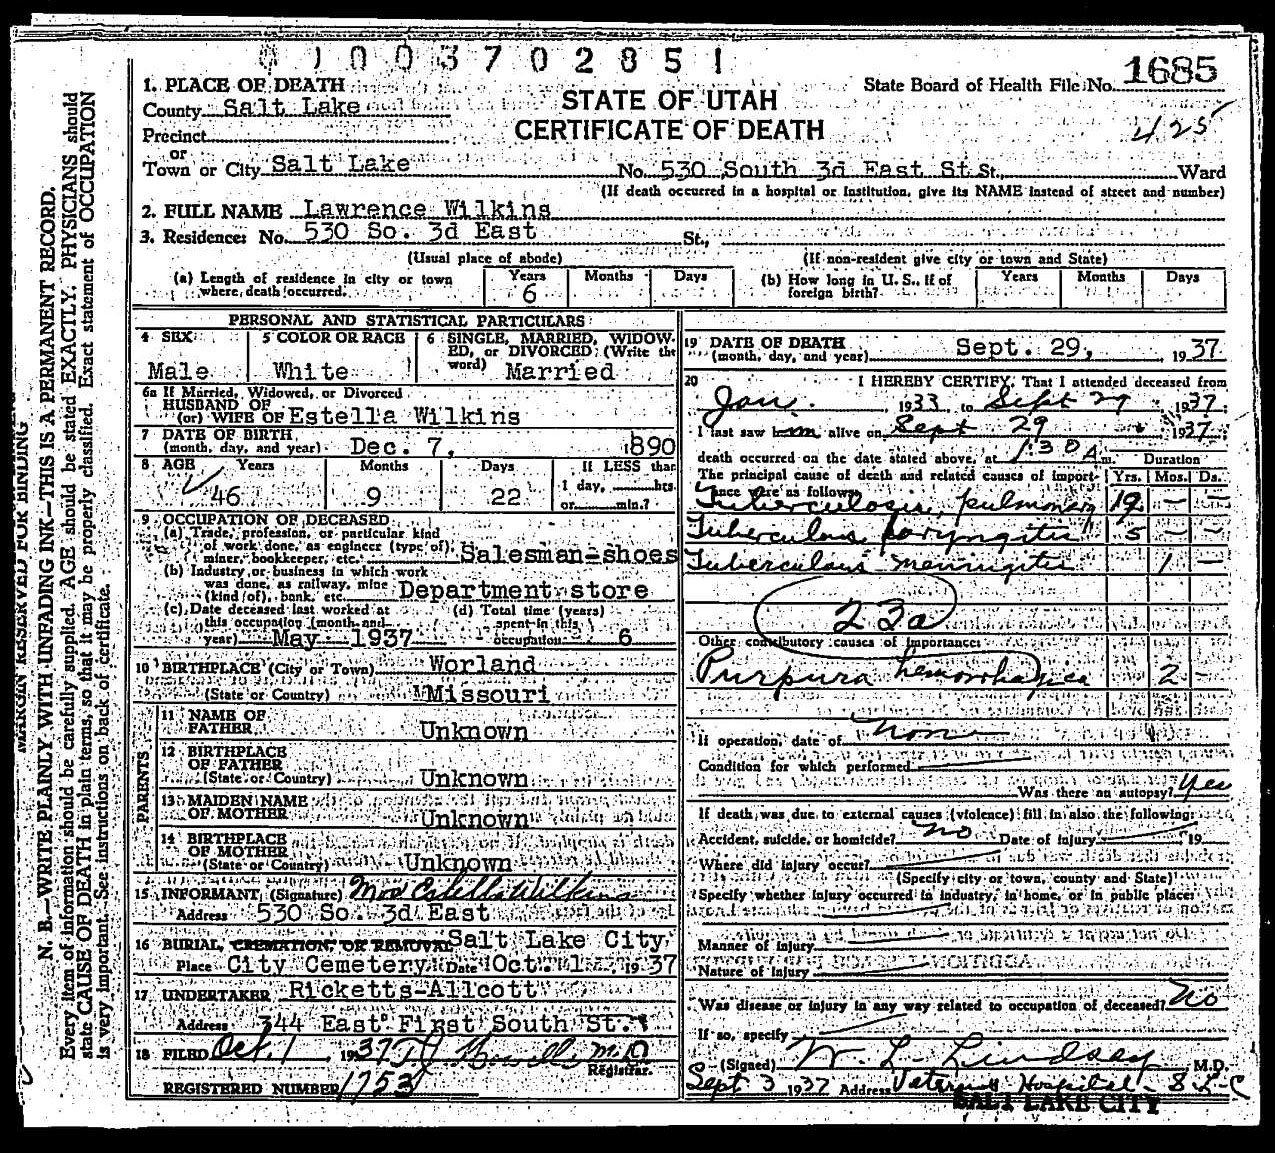 01003702851
1. PLACE OF DEATH
State Board of Health File No. 1685
County Salt Lake
STATE OF UTAH
CERTIFICATE OF DEATH
425
Precinct
or
Town or City Salt Lake No. 530 South 3d East St. St., Ward
(If death occurred in a hospital or institution, give its NAME instead of street and number)
2. FULL NAME Lawrence Wilkins
3. Residence: No. 530 So. 3d East St.,
(Usual place of abode) (If non-resident give city or town and State)
(a) Length of residence in city or town where death occurred. Years 6 Months Days
(b) How long in U. S., if of foreign birth? Years Months Days
PERSONAL AND STATISTICAL PARTICULARS
4 SEX Male
5 COLOR OR RACE White
6 SINGLE, MARRIED, WIDOWED, or DIVORCED: (Write the word) Married
6a If Married, Widowed, or Divorced
HUSBAND OF
(or) WIFE OF Estella Wilkins
7 DATE OF BIRTH
(month, day, and year) Dec. 7, 1890
8 AGE Years 46 Months 9 Days 22 If LESS than 1 day, hrs. or min.?
9 OCCUPATION OF DECEASED
(a) Trade, profession, or particular kind
of work done, as engineer (type of),
miner, bookkeeper, etc. Salesman-shoes
(b) Industry or business in which work
was done, as railway, mine
(kind of), bank, etc. Department store
(c) Date deceased last worked at
this occupation (month and
year) May 1937
(d) Total time (years)
spent in this
occupation 6
10 BIRTHPLACE (City or Town) Worland
(State or Country) Missouri
PARENTS
11 NAME OF
FATHER Unknown
12 BIRTHPLACE
OF FATHER
(State or Country) Unknown
13 MAIDEN NAME
OF MOTHER Unknown
14 BIRTHPLACE
OF MOTHER
(State or Country) Unknown
15 INFORMANT, (Signature) Mrs Estella Wilkins
Address 530 So. 3d East
16 BURIAL, CREMATION, OR REMOVAL Salt Lake City
Place City Cemetery Date Oct. 1 1937
17 UNDERTAKER Ricketts-Allcott
Address 344 East First South St.
18 FILED Oct. 1, 1937 M.D.
Registrar.
REGISTERED NUMBER 1753
19 DATE OF DEATH
(month, day, and year) Sept. 29, 1937
20 I HEREBY CERTIFY, That I attended deceased from
Jan. 1933 to Sept 29 1937
I last saw him alive on Sept 29 1937
death occurred on the date stated above, at 1:30 A m. Duration
The principal cause of death and related causes of importance were as follows: Yrs. Mos. Ds.
Tuberculosis, pulmonary 19 — —
Tuberculous laryngitis 5 — —
Tuberculous meningitis 1 —
23a
Other contributory causes of importance:
Purpura hemorrhagica 2 -
If operation, date of None
Condition for which performed
Was there an autopsy? Yes
If death was due to external causes (violence) fill in also the following:
Accident, suicide, or homicide? No Date of injury 19
Where did injury occur?
(Specify city or town, county and State)
Specify whether injury occurred in industry, in home, or in public place:
Manner of injury
Nature of injury
Was disease or injury in any way related to occupation of deceased? No
If so, specify
(Signed) W. L. Lindsay M.D.
Sept 3 1937 Address Veterans Hospital - S L C
SALT LAKE CITY
MARGIN RESERVED FOR BINDING
N. B.—WRITE PLAINLY WITH UNFADING INK—THIS IS A PERMANENT RECORD.
Every item of information should be carefully supplied. AGE should be stated EXACTLY. PHYSICIANS should
state CAUSE OF DEATH in plain terms, so that it may be properly classified. Exact statement of OCCUPATION
is very important. See instructions on back of certificate.